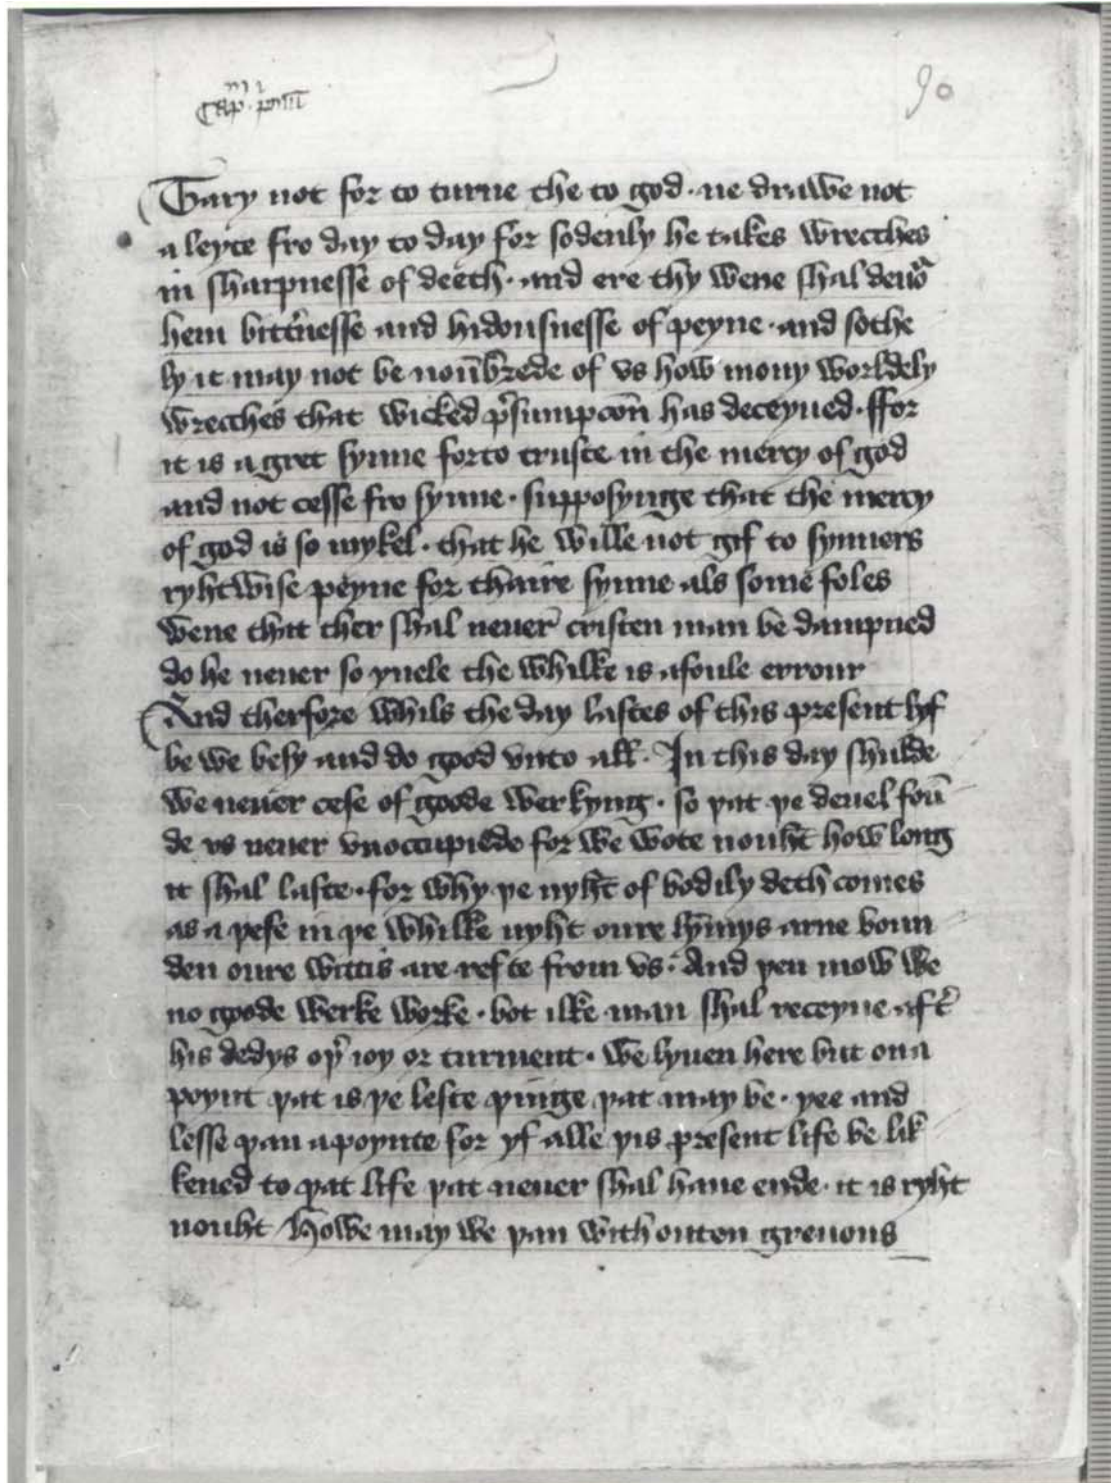 90
Tary not for to turne the to god · ne drawe not
a leyte fro day to day for sodenly he takes wrecches
in sharpnesse of deeth · and ere thy wene shal deuoᵃ
hem bitt̉nesse and hidousnesse of peyne · and sothe
ly it may not be noūbrede of vs how mony worldely
wrecches that wicked p̉sumpcōn has deceyued · ffor
it is a gret synne forto truste in the mercy of god
and not cesse fro synne · supposynge that the mercy
of god is so mykel · that he wille not gif to synners
ryhtwise peyne for thaire synne als some foles
wene that ther shal neuer cristen man be dampned
do he neuer so yuele the whilke is a foule errour
And therfore whils the day lastes of this present lyf
be we besy and do good vnto all · In this day shulde
we neuer cese of goode werkyng · so þat þe deuel foū
de vs neuer vnoccupiede for we wote nouht how long
it shal laste · for why þe nyht of bodily deth comes
as a þefe in þe whilke nyht oure lymys arne boun
den oure wittis are refte from vs · And þen mow we
no goode werke worke · bot ilke man shal receyue aft̉
his dedys oþ̉ ioy or turment · we lyuen here but on a
poynt þat is þe leste þinge þat may be · yee and
lesse þan a poynte for yf alle þis present life be lik
kened to þat life þat neuer shal haue ende · it is ryht
nouht Howe may we þan with outen greuous